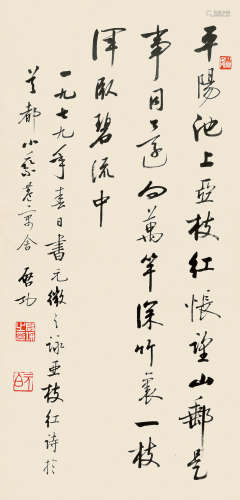 平陽池上亞枝紅悵望山郵是
事同還向萬竿深竹裏一枝
渾臥碧流中
一九七九年春日書元微之詠亞枝紅詩於
首都小乘巷寓舍 啟功